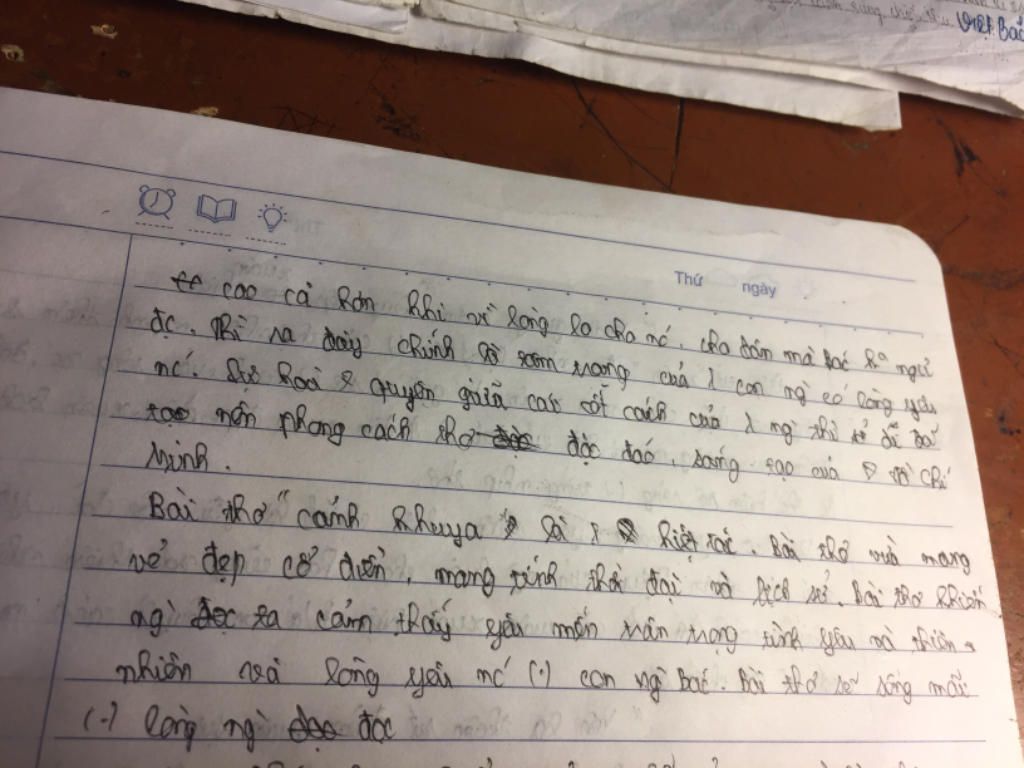 Việt Bắc
Thứ ngày
cao cả hơn khi vì lòng lo cho nc, cho dân mà Bác k ngủ
đc. thì ra đây chính là tâm trạng của 1 con ng có lòng yêu
nc. Sự hoà quyện giữa cao cốt cách của 1 ng thi sĩ đã
tạo nên phong cách thơ độc đáo, sáng tạo của Hồ Chí
Minh.
Bài thơ "cảnh khuya" là 1 kiệt tác. Bài thơ vừa mang
vẻ đẹp cổ điển, mang tính thời đại và lịch sử. Bài thơ khiến
ng ta cảm thấy yêu mến trân trọng tình yêu và thiên
nhiên và lòng yêu nc (.) con ng Bác. Bài thơ sẽ sống mãi
(.) lòng ng đọc